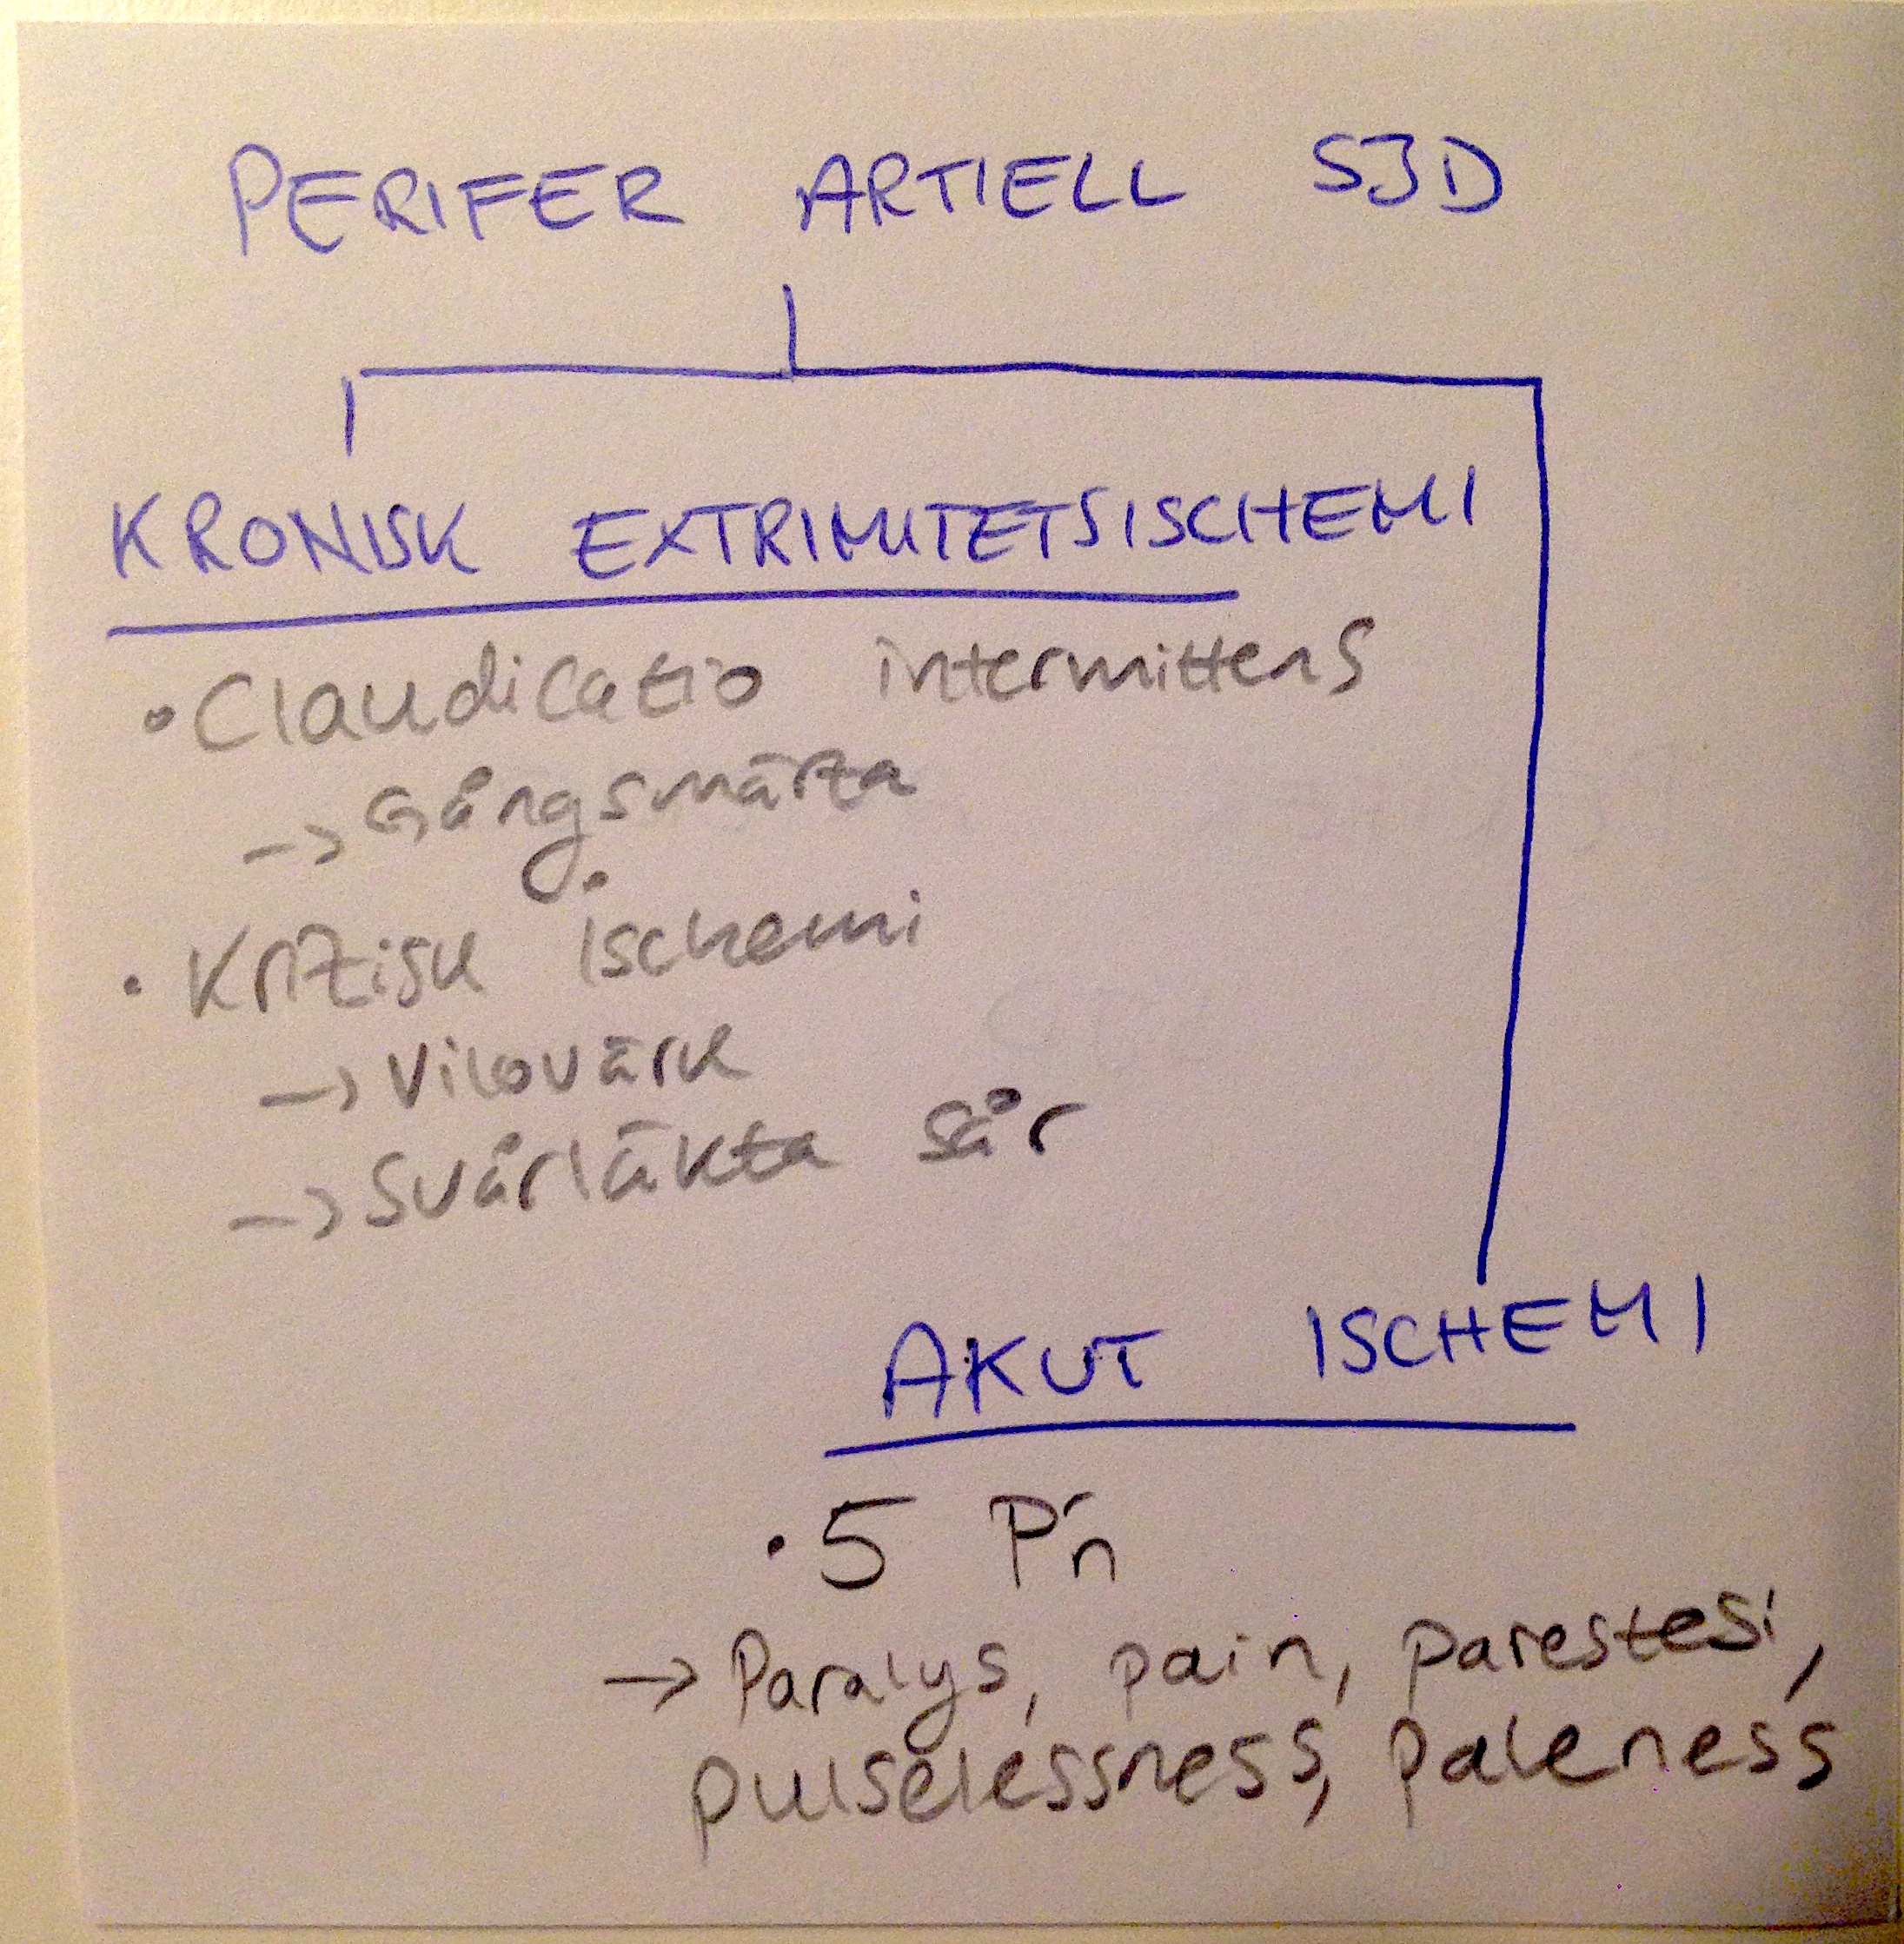 PERIFER ARTIELL SJD
KRONISK EXTRIMITETSISCHEMI
• Claudicatio intermittens
→ Gångsmärta
• Kritisk ischemi
→ Vilovärk
→ Svårläkta sår
AKUT ISCHEMI
• 5 P'n
→ Paralys, pain, parestesi,
pulselessness, paleness